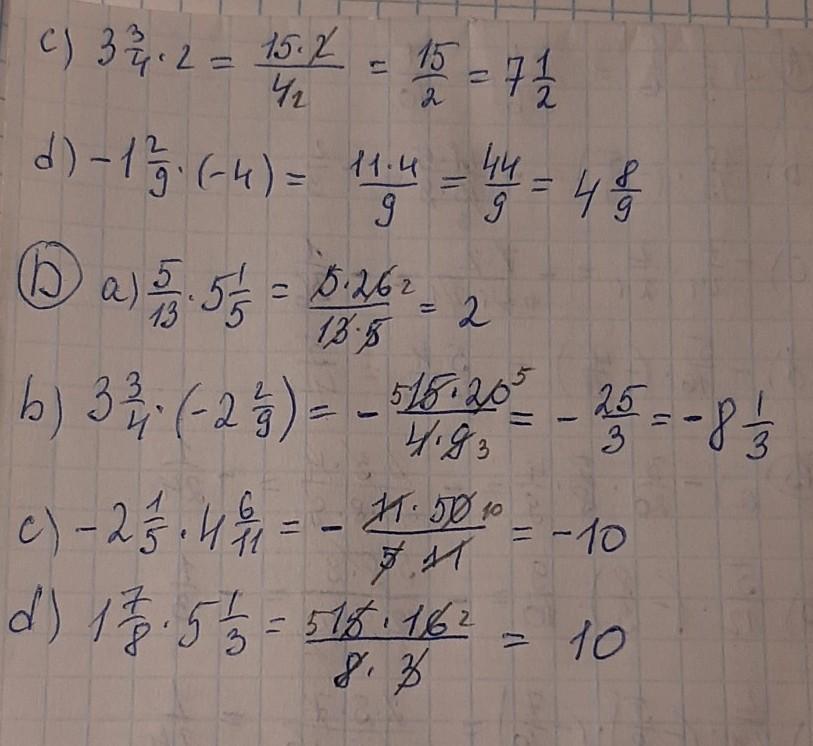 c) 3 3/4 · 2 = 15·2/4 2 = 15/2 = 7 1/2
d) -1 2/9 · (-4) = 11·4/9 = 44/9 = 4 8/9
b a) 5/13 · 5 1/5 = 5·26 2/13·5 = 2
b) 3 3/4 · (-2 2/9) = - 5 15·20 5/4·9 3 = - 25/3 = -8 1/3
c) -2 1/5 · 4 6/11 = - 11·50 10/5 11 = -10
d) 1 7/8 · 5 1/3 = 5 15·16 2/8·3 = 10